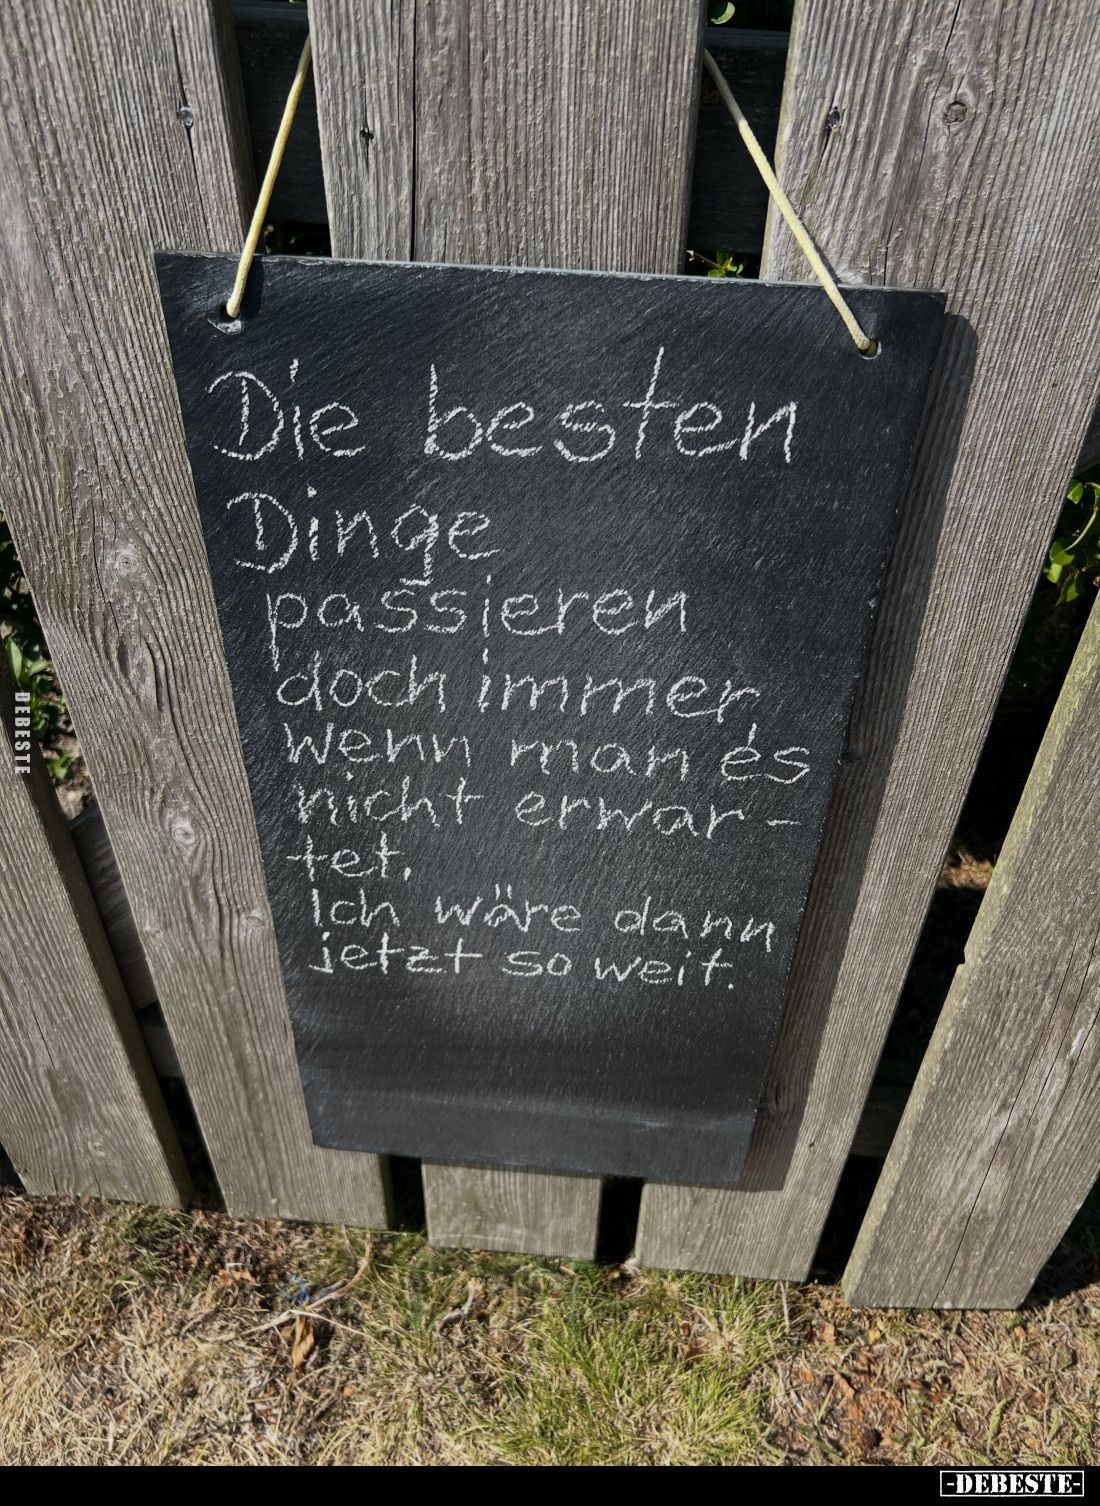 Die besten
Dinge
passieren
doch immer
wenn man es
nicht erwar-
tet.
Ich wäre dann
jetzt so weit.
DEBESTE
-DEBESTE-